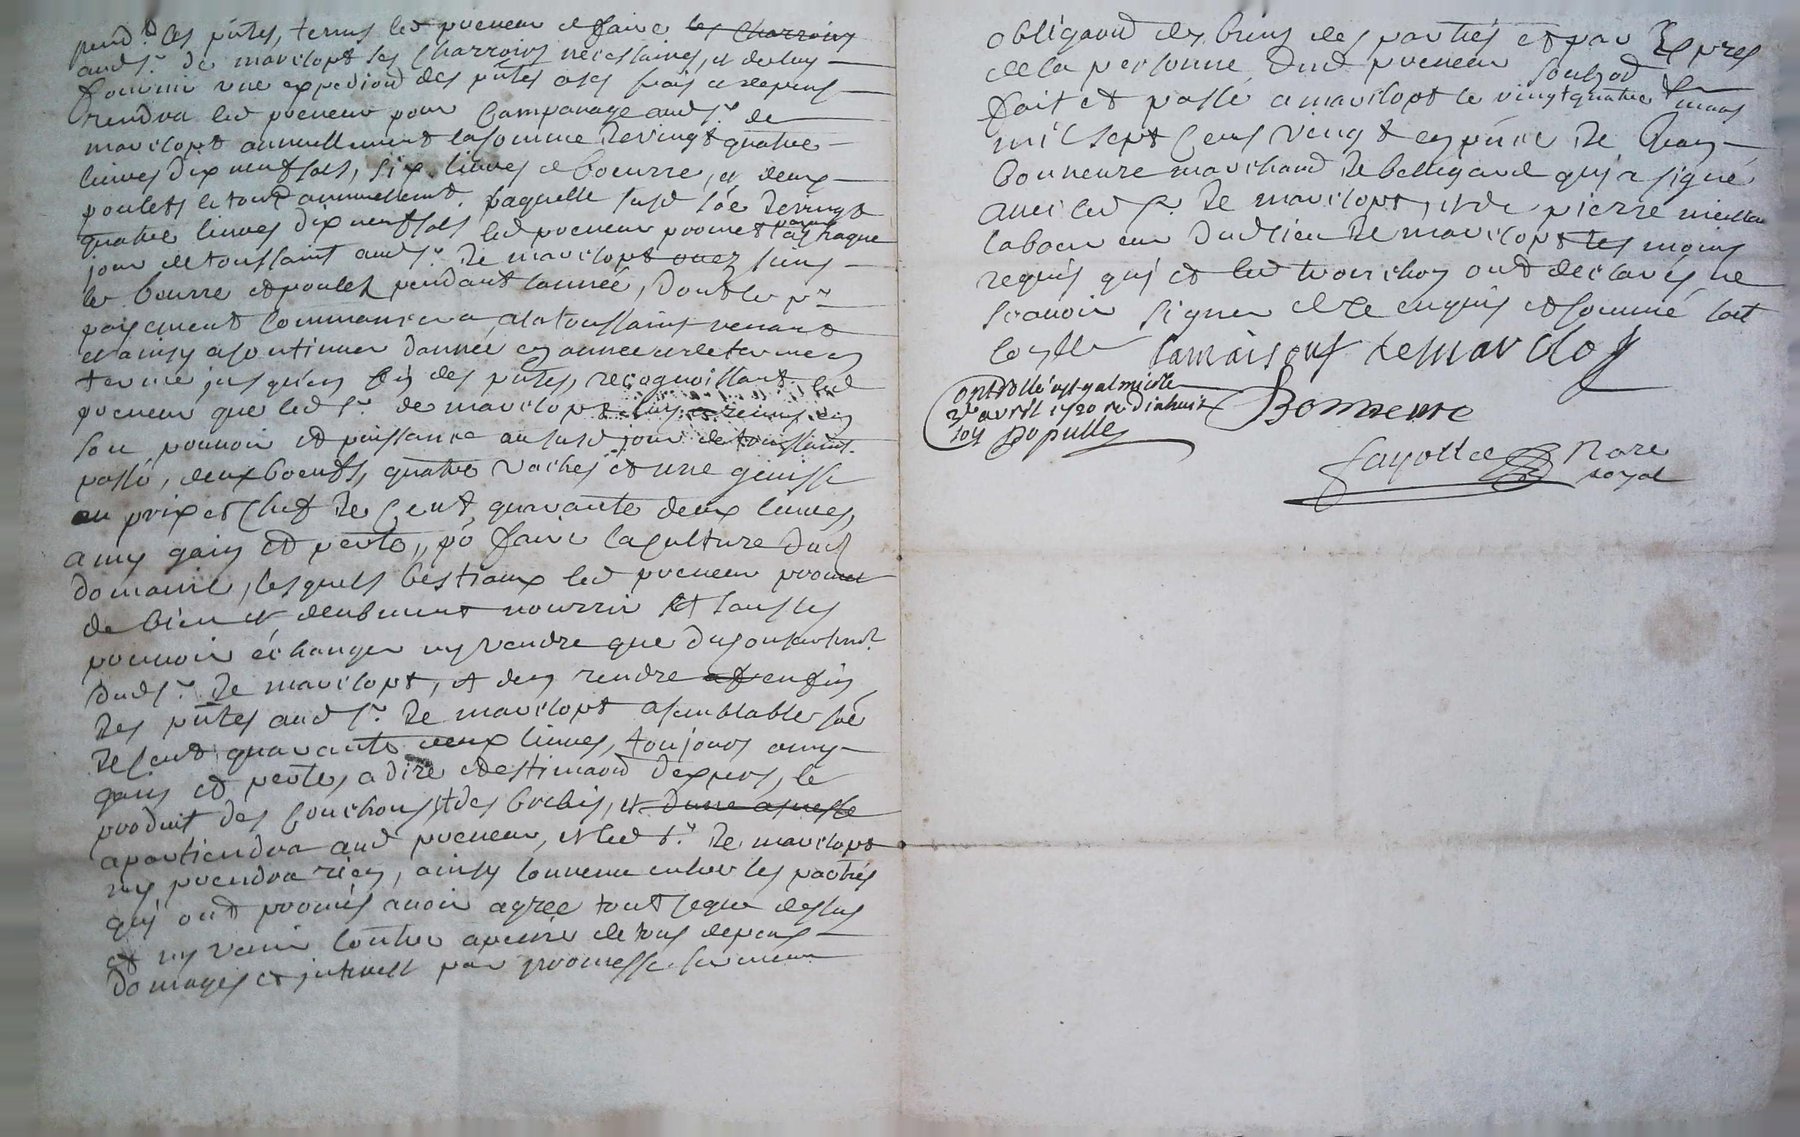 pend.t les p̃ntes, tenus led preneur de faire les charrois
aud s.r de marcilopt les charrois necessaires, et de luy
fournir une expediõd des p̃ntes a ses frais et depens
rendra led preneur pour Campanage aud s.r de
marcilopt annuellement la somme de vingt quatre
livres dix neuf sols, six livres de beurre, et deux
poulets le tout annuellement, laquelle susd sõe de vingt
quatre livres dix neuf sols led preneur promet payer a chaque
jour de toussaint aud s.r de marcilopt avec
le beurre et poulet pendant lannée, dont le p.r
paiement commancera a la toussaint venant
et ainsy a continuer dannée en année et de terme en
terme jusqu'en fin des p̃ntes, recognoissant led
preneur que led s.r de marcilopt luy a remis en
son pouvoir et puissance au susd jour de toussaint
passé, deux boeufs, quatre vaches et une genisse
au prix et chef de cent quarante deux livres,
a my gain et perte, po.r faire la culture dud
domaine, lesquels bestiaux led preneur promet
de bien et deubment nourrir et sans les
pouvoir échanger ny vendre que du consentem.t
dud s.r de marcilopt, et den rendre en fin
des p̃ntes aud s.r de marcilopt a semblable sõe
de cent quarante deux livres, toujours a my
gain et perte, a dire et estimaõd d'expers, le
produit des couchons, et des brebis, et dune anesse
apartiendra aud preneur, et led s.r de marcilopt
ny prendra rien, ainsy convenu entre les parties
qui ont promis avoir agrée tout ce que dessus
et ny venir contre a peine de tous depens
domages et interest par promesse serment
obligaõd des biens des parties et par Exprés
de la personne dud preneur soubz.od
fait et passé a marcilopt le vingt quatre mars
mil sept cens vingt en p̃nce de
Bonneure marchand de bellegarde qui a signé
avec led s.r de marcilopt, et de pierre
laboureur dud lieu de marcilopt tesmoins
requis qui et led ont declaré ne
scavoir signer de ce enquis et sommé
lamaisonf demarcilop
Controllé
avril 1720 re dixhuit
Bonneure
sols
Fayolle Nore
royal